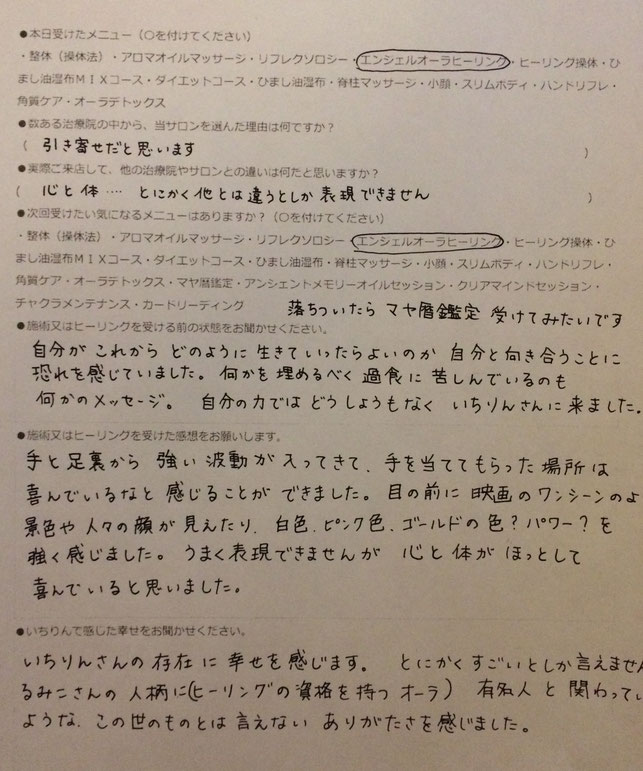 ●本日受けたメニュー（○を付けてください）
・整体（操体法）・アロマオイルマッサージ・リフレクソロジー・エンジェルオーラヒーリング・ヒーリング操体・ひ
まし油湿布ＭＩＸコース・ダイエットコース・ひまし油湿布・脊柱マッサージ・小顔・スリムボディ・ハンドリフレ・
角質ケア・オーラデトックス
●数ある治療院の中から、当サロンを選んだ理由は何ですか？
( 引き寄せだと思います )
●実際ご来店して、他の治療院やサロンとの違いは何だと思いますか？
( 心と体‥‥ とにかく他とは違うとしか表現できません )
●次回受けたい気になるメニューはありますか？（○を付けてください）
・整体（操体法）・アロマオイルマッサージ・リフレクソロジー・エンジェルオーラヒーリング・ヒーリング操体・ひ
まし油湿布ＭＩＸコース・ダイエットコース・ひまし油湿布・脊柱マッサージ・小顔・スリムボディ・ハンドリフレ・
角質ケア・オーラデトックス・マヤ暦鑑定・アンシェントメモリーオイルセッション・クリアマインドセッション・
チャクラメンテナンス・カードリーディング 落ちついたら マヤ暦鑑定 受けてみたいです
●施術又はヒーリングを受ける前の状態をお聞かせください。
自分が これから どのように 生きていったらよいのか 自分と向き合うことに
恐れを感じていました。何かを埋めるべく 過食に 苦しんでいるのも
何かのメッセージ。 自分の力では どうしようもなく いちりんさんに来ました。
●施術又はヒーリングを受けた感想をお願いします。
手と足裏から 強い波動が入ってきて、手を当ててもらった場所は
喜んでいるなと 感じることが できました。目の前に 映画のワンシーンのよ
景色や人々の顔が見えたり、白色、ピンク色、ゴールドの色？パワー？を
強く感じました。うまく表現できませんが 心と体が ほっとして
喜んでいると思いました。
●いちりんで感じた幸せをお聞かせください。
いちりんさんの存在に 幸せを感じます。 とにかくすごいとしか言えません
るみこさんの人柄に(ヒーリングの資格を持つ オーラ) 有名人と関わってい
ような、この世のものとは言えない ありがたさを感じました。